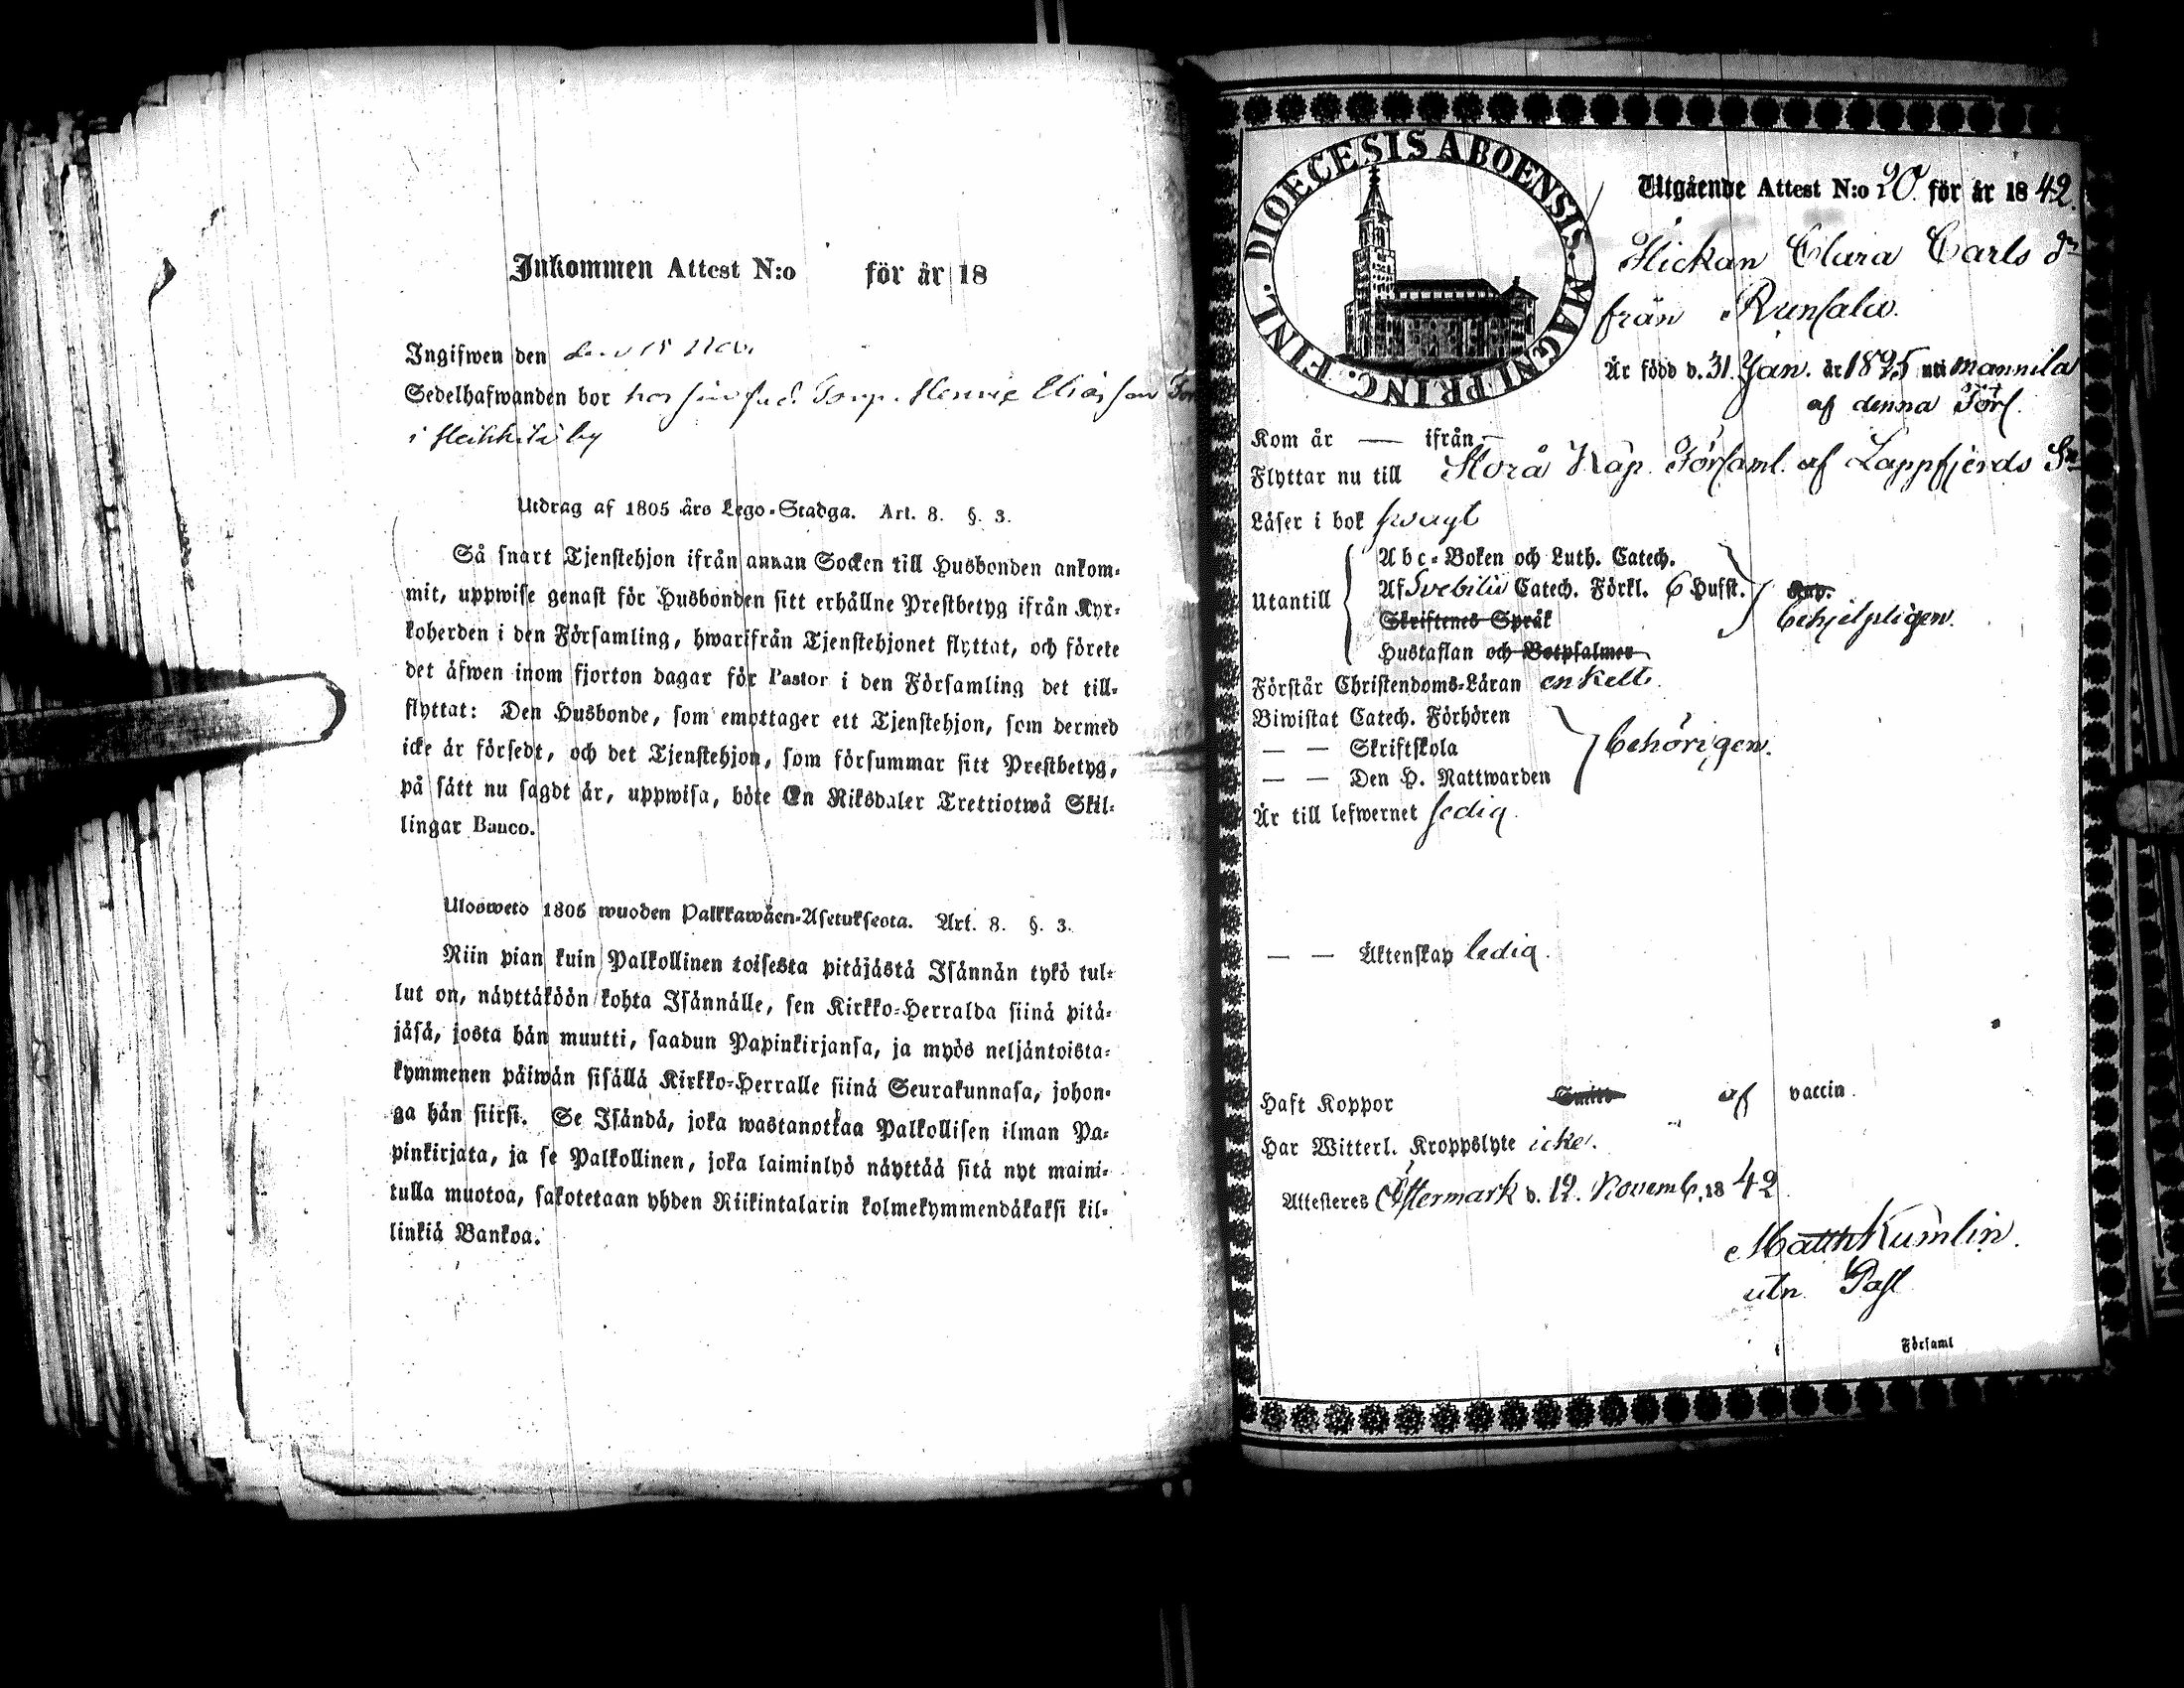 Inkommen Attest N:o för år 18
Ingifwen den den 15 Nov.
Sedelhafwanden bor hos sin Torp. Henric Eliasson
i by
Utdrag af 1805 års Lego-Stadga. Art. 8. §. 3.
Så snart Tjenstehjon ifrån annan Socken till Husbonden ankom-
mit, uppwise genast för Husbonden sitt erhållne Prestbetyg ifrån Kyr-
koherden i den Församling, hwarifrån Tjenstehjonet flyttat, och förete
det äfwen inom fjorton dagar för Pastor i den Församling det till-
flyttat: Den Husbonde, som emottager ett Tjenstehjon, som dermed
icke är försedt, och det Tjenstehjon, som försummar sitt Prestbetyg,
på sätt nu sagdt är, uppwisa, böte En Riksdaler Trettiotwå Skil-
lingar Banco.
Ulosweto 1805 wuoden Palkkawäen-Asetuksesta. Art. 8. §. 3.
Niin pian kuin Palkollinen toisesta pitäjästä Isännän tykö tul-
lut on, näyttäköön kohta Isännälle, sen Kirkko-Herralda siinä pitä-
jäsä, josta hän muutti, saadun Papinkirjansa, ja myös neljäntoista-
kymmenen päiwän sisällä Kirkko-Herralle siinä Seurakunnasa, johon-
ga hän siirsi. Se Isändä, joka wastanottaa Palkollisen ilman Pa-
pinkirjata, ja se Palkollinen, joka laiminlyö näyttää sitä nyt maini-
tulla muotoa, sakotetaan yhden Riikintalarin kolmekymmendäkaksi kil-
linkiä Bankoa.
DIOECESIS ABOENSIS. MAGNI PRINC. FINL.
Utgående Attest N:o 20. för år 1842.
Flickan Clara Carls dr
från Runsala.
Är född d. 31. Jan. år 1825 uti Mannila
af denna Förs.
Kom år — ifrån —
Flyttar nu till Storå Kap. Församl. af Lappfjerds Sn
Läser i bok swagt
Utantill
Abc-Boken och Luth. Catech.
Af Svebilii Catech. Förkl. 6 Hufst.
Skriftenes Språk
Hustaflan och Botpsalmer
behjelpligen.
Förstår Christendoms-Läran enkelt.
Biwistat Catech. Förhören
— — Skriftskola
— — Den H. Nattwarden
behörigen.
Är till lefwernet sedig.
— — Äktenskap ledig.
Haft Koppor af vaccin.
Har Witterl. Kroppslyte icke.
Attesteras Östermark d. 12. Novemb. 1842
Matth Kumlin.
utn Past
Församl